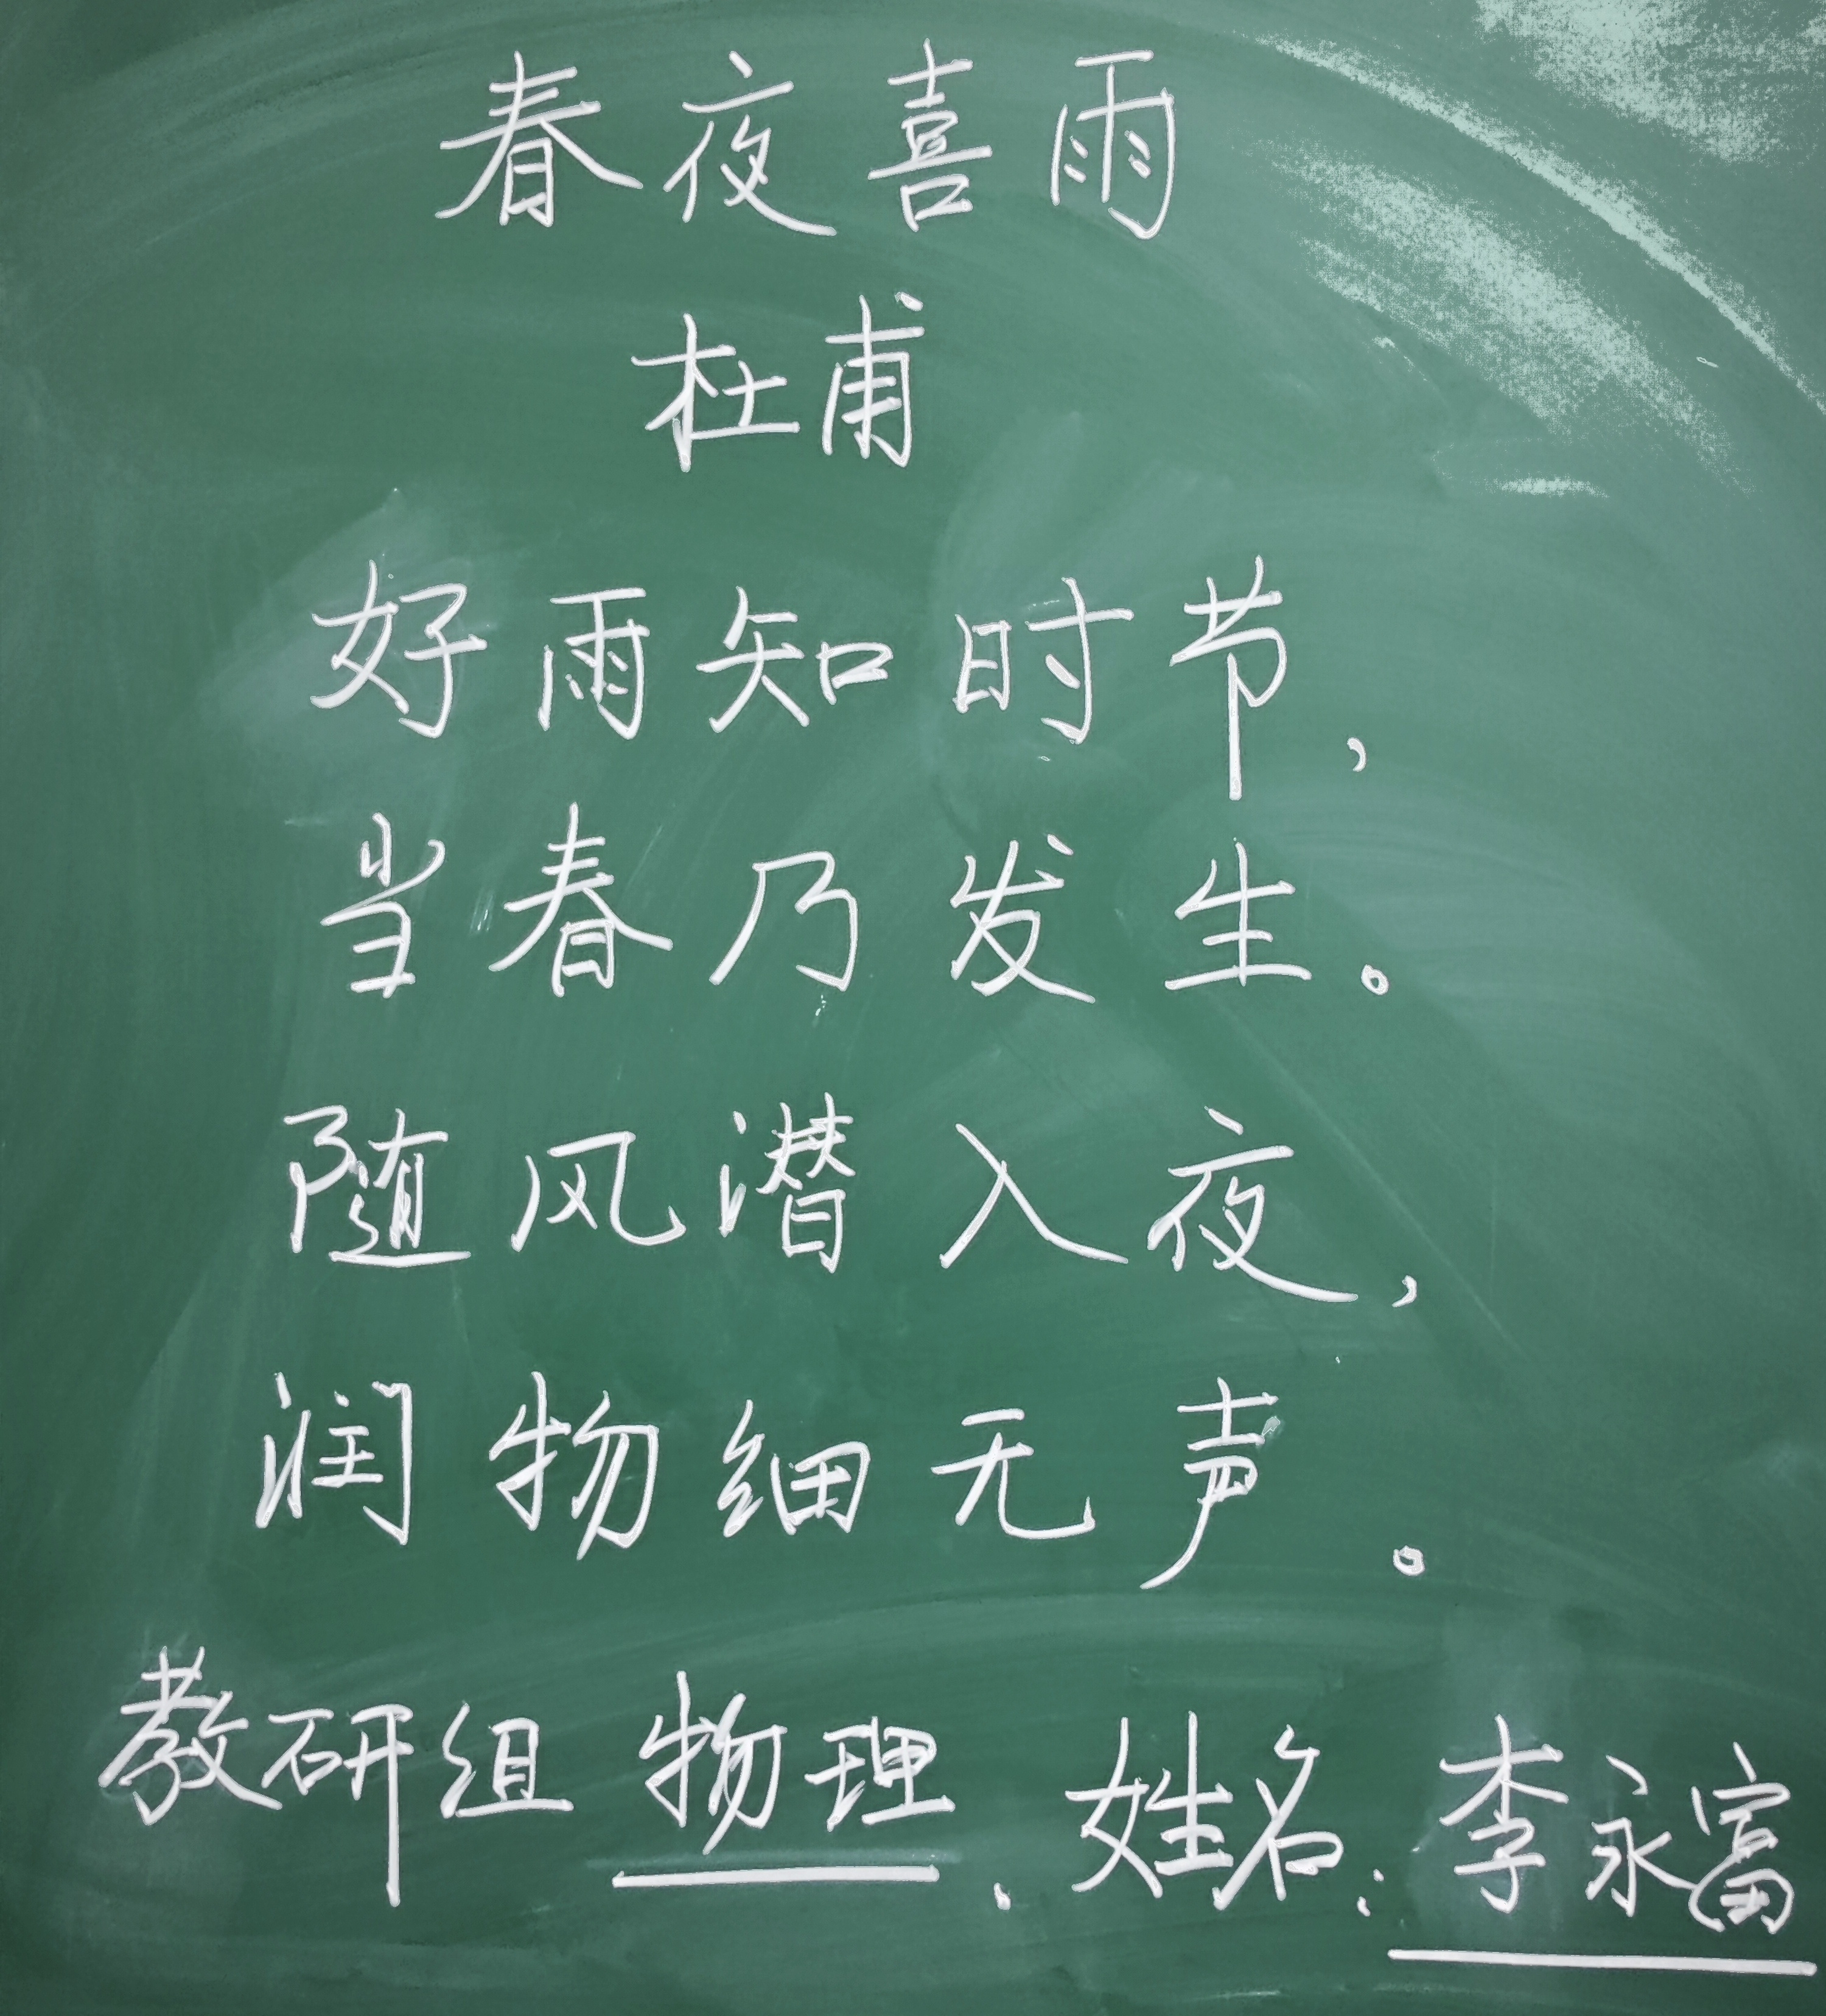 春夜喜雨
杜甫
好雨知时节，
当春乃发生。
随风潜入夜，
润物细无声。
教研组 物理. 姓名: 李永富